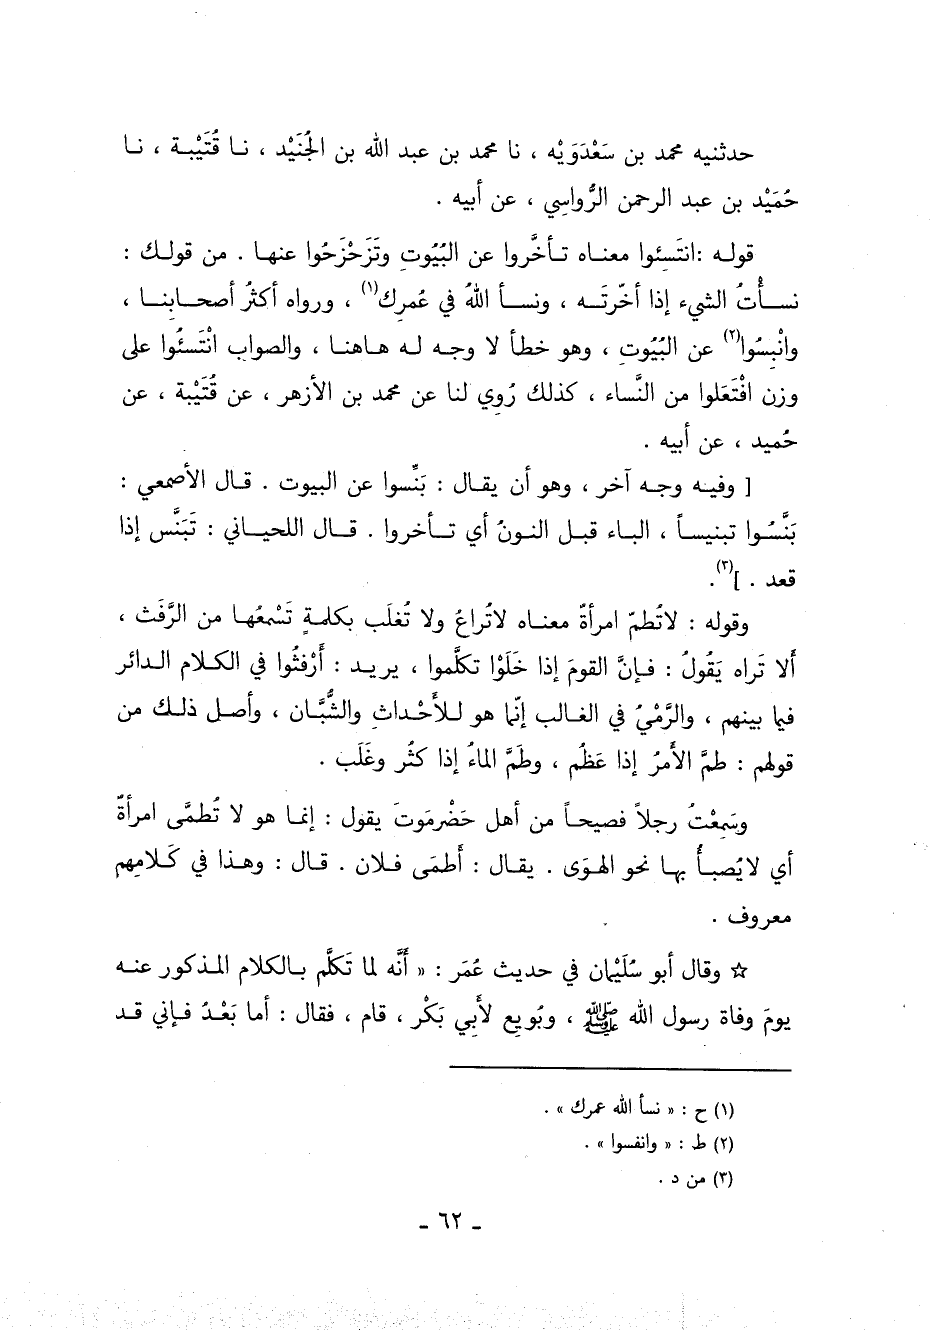 حدثنيه محمد بن سَعْدَوَيْه ، نا محمد بن عبد الله بن الجُنَيْد ، نا قُتَيْبة ، نا
حُمَيْد بن عبد الرحمن الرُّواسِي ، عن أبيه .
قوله :انتَسِئوا معناه تأخَّروا عن البُيُوتِ وتَزَحْزَحُوا عنها . من قولك :
نسأتُ الشيء إذا أخّرتَه ، ونسأ اللهُ في عُمرِك(١) ، ورواه أكثرُ أصحابنا ،
وانْبِسُوا(٢) عن البُيُوتِ ، وهو خطأ لا وجه له هاهنا ، والصواب انْتَسئُوا على
وزن افْتَعَلوا من النَّساء ، كذلك رُوي لنا عن محمد بن الأزهر ، عن قُتَيْبة ، عن
حُميد ، عن أبيه .
[ وفيه وجه آخر ، وهو أن يقال : بَنِّسوا عن البيوت . قال الأصمعي :
بَنَّسُوا تبنيساً ، الباء قبل النونُ أي تأخروا . قال اللحياني : تَبَنَّس إذا
قعد . ](٣).
وقوله : لاتُطمّ امرأةٌ معناه لاتُراعُ ولا تُغلَب بكلمةٍ تَسْمعُها من الرَّفَث ،
ألا تَراه يَقُولُ : فإنَّ القومَ إذا خَلَوْا تكلَّموا ، يريد : أَرْفثُوا في الكلام الدائر
فيما بينهم ، والرَّمْيُ في الغالب إنّما هو للأَحْداثِ والشُّبَّان ، وأصل ذلك من
قولهم : طمَّ الأَمرُ إذا عَظُم ، وطَمَّ الماءُ إذا كثُر وغَلَب .
وسَمِعْتُ رجلاً فصيحاً من أهل حَضْرمَوتَ يقول : إنما هو لا تُطمَّى امرأةٌ
أي لايُصبأُ بها نحو الهوَى . يقال : أَطمَى فلان . قال : وهذا في كَلامِهم
معروف .
☆ وقال أبو سُلَيْمان في حديث عُمَر : « أَنَّه لما تَكلَّم بالكلام المذكور عنه
يومَ وفاة رسول الله ﷺ ، وبُويِع لأَبي بَكْر ، قام ، فقال : أما بَعْدُ فإني قد
(١) ح : « نسأ الله عمرك » .
(٢) ط : « وانفسوا » .
(٣) من د .
- ٦٢ -